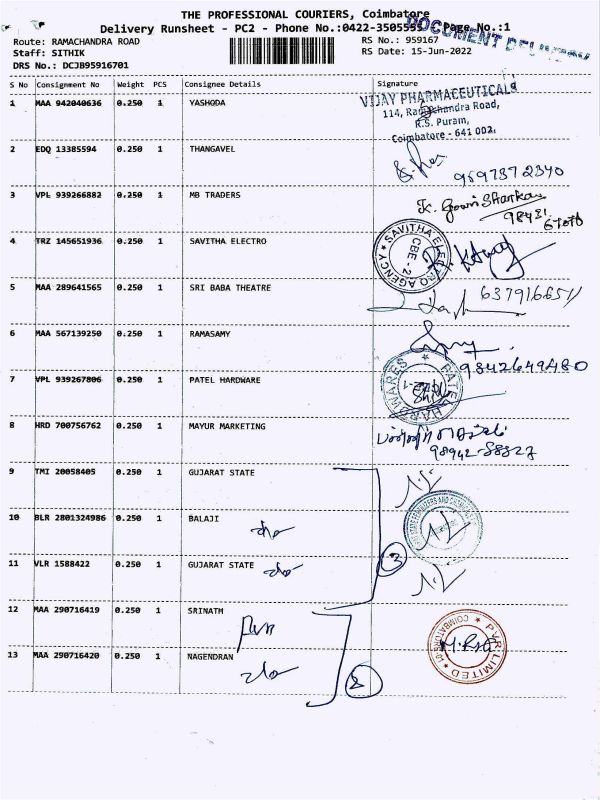 THE PROFESSIONAL COURIERS, Coimbatore
Delivery Runsheet - PC2 - Phone No.:0422-3505555 Page No.:1
DOCUMENT DELIVERY
Route: RAMACHANDRA ROAD
Staff: SITHIK
RS No.: 959167
RS Date: 15-Jun-2022
DRS No.: DCJB95916701
S No Consignment No Weight PCS Consignee Details Signature
1 MAA 942040636 0.250 1 YASHODA
VIJAY PHARMACEUTICALS
114, Ramachandra Road,
R.S. Puram,
Coimbatore - 641 002.
2 EDQ 13385594 0.250 1 THANGAVEL
9597372340
3 VPL 939266882 0.250 1 MB TRADERS
K. Gowri Shankar
4 TRZ 145651936 0.250 1 SAVITHA ELECTRO
SAVITHA ELECTRO AGENCY
CBE - 2
5 MAA 289641565 0.250 1 SRI BABA THEATRE
6379166511
6 MAA 567139250 0.250 1 RAMASAMY
9842649480
7 VPL 939267806 0.250 1 PATEL HARDWARE
PATEL HARDWARES
8 HRD 700756762 0.250 1 MAYUR MARKETING
98942-58827
9 TMI 20058405 0.250 1 GUJARAT STATE
10 BLR 2801324986 0.250 1 BALAJI
11 VLR 1588422 0.250 1 GUJARAT STATE
3
12 MAA 290716419 0.250 1 SRINATH
PVR
PVR LIMITED
COIMBATORE
13 MAA 290716420 0.250 1 NAGENDRAN
2